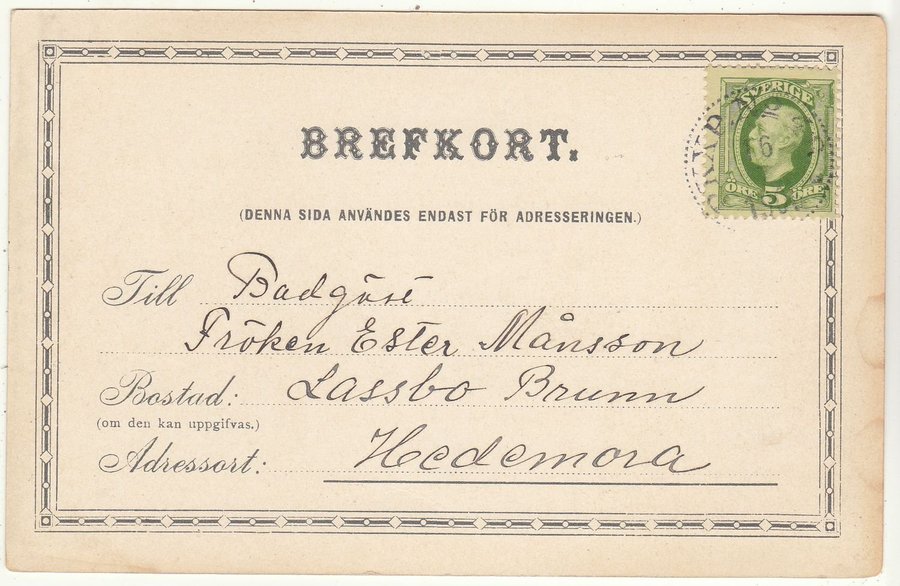 BREFKORT.
(DENNA SIDA ANVÄNDES ENDAST FÖR ADRESSERINGEN.)
SVERIGE
ÖRE 5 ÖRE
Till Badgäst
Fröken Ester Månsson
Bostad: Lassbo Brunn
(om den kan uppgifvas.)
Adressort: Hedemora